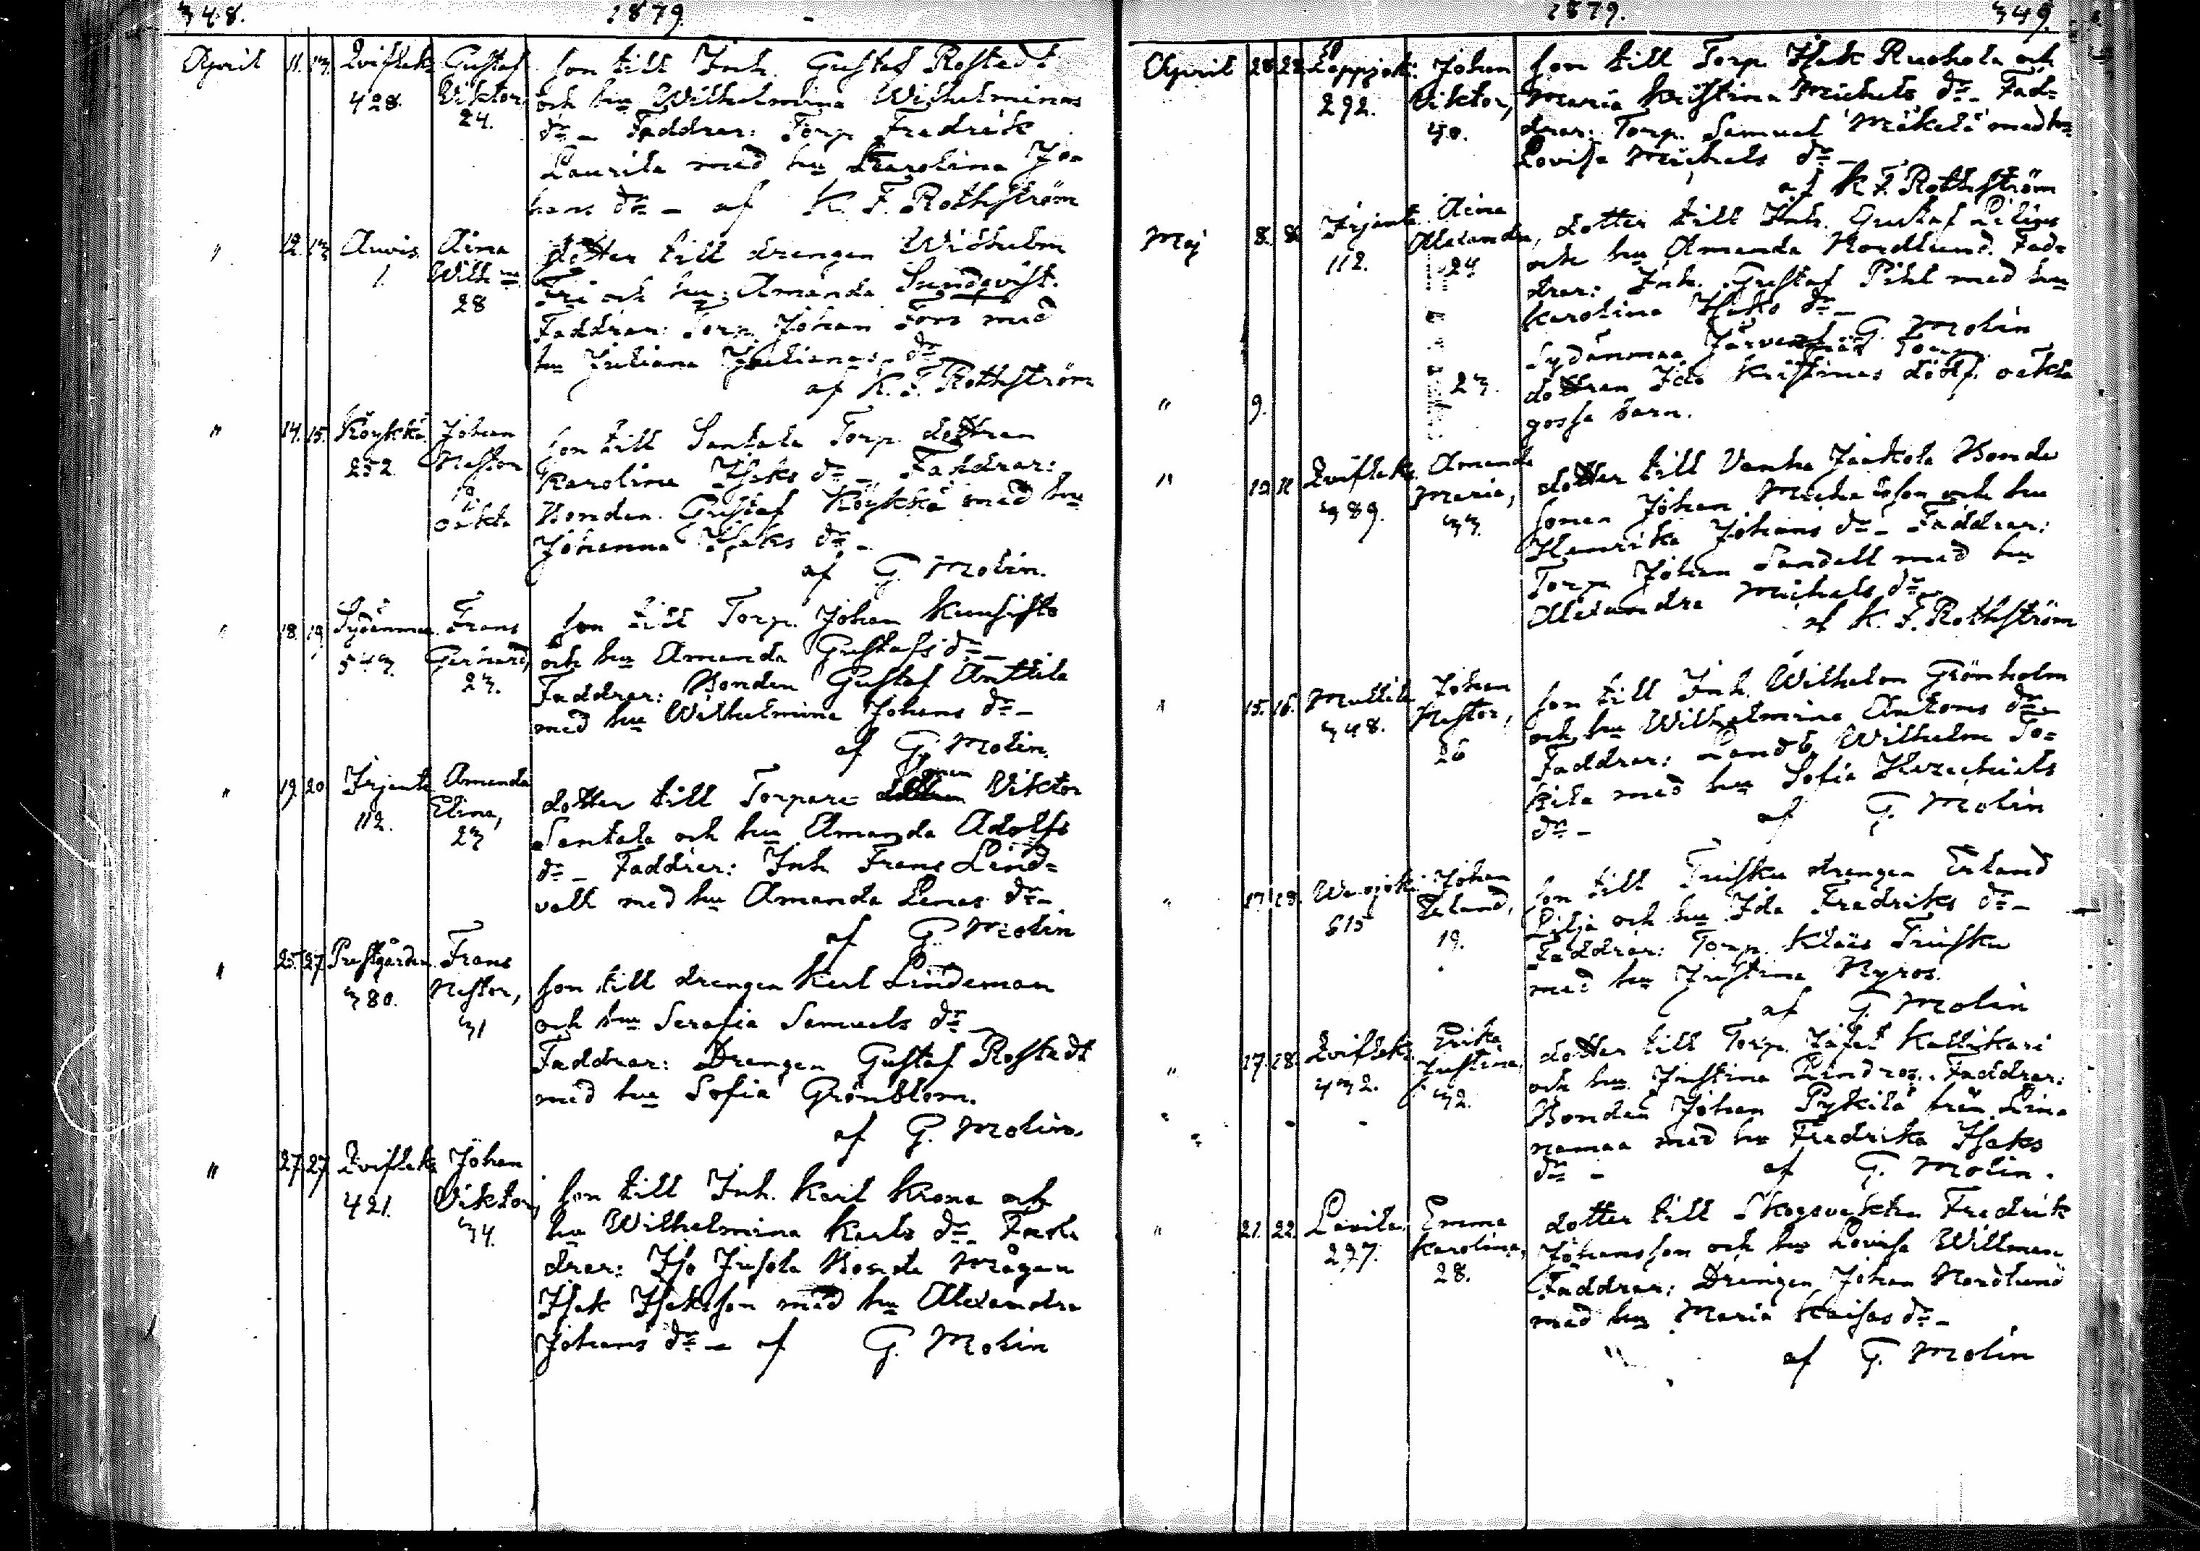 348. 1879
April 11. 13. Qviflaks 428. Gustaf Viktor, 24.
son till Inh. Gustaf Rostedt
och hu Wilhelmina Wilhelminas
dr – Faddrar: Torp. Fredrik
Laurila med hu Karolina Jo-
hans dr – af K. F. Rothström
" 12. 13. Auvis 1. Aina Wilh:na 28
dotter till drengen Wilhelm
Fri och hu Amanda Sundqvist.
Faddrar: Torp. Johan Fors med
hu Juliana Julianas dr
af K. F. Rothström
" 14. 15. Köykkä 252 Johan Nestor oäkta
son till Santala Torp. dottren
Karolina Isaks dr – Faddrar:
Bonden Gustaf Köykkä med hu
Johanna Isaks dr –
af G. Molin.
" 18. 19. Sydänmaa 543. Frans Gerhard, 23.
son till Torp. Johan Kuusisto
och hu Amanda Gustafs dr –
Faddrar: Bonden Gustaf Anttila
med hu Wilhelmina Johans dr –
af G. Molin.
" 19. 20. Irjanta 112. Amanda Elina, 23
sonen
dotter till Torpare dottren Viktor
Santala och hu Amanda Adolfs
dr – Faddrar: Inh. Frans Lind-
vall med hu Amanda Lenas dr –
af G. Molin
" 25. 27. Prestgården 380. Frans Nestor, 31
son till drengen Karl Lindeman
och hu Serafia Samuels dr –
Faddrar: Drengen Gustaf Rostedt
med hu Sofia Grönblom.
af G. Molin.
" 27. 27. Qviflaks 421. Johan Viktor, 34.
son till Inh. Karl Krona och
hu Wilhelmina Karls dr Fad-
drar: Iso Jusola Bonde Mågen
Isak Isaksson med hu Alexandra
Johans dr – af G. Molin
1879. 349.
April 28. 28. Lappijoki 292. Johan Viktor, 40.
son till Torp. Isak Ruohola och
Maria Kristina Michels dr – Fad-
drar: Torp. Samuel Mäkelä med hu
Lovisa Michels dr –
af K. F. Rothström
Maj 8. 8. Irjanta 112. Aina Alexandra, 24
dotter till Inh. Gustaf Lilius
och hu Amanda Nordlund. Fad-
drar: Inh. Gustaf Pihl med hu
Karolina Isaks dr –
G. Molin
" 9. 23.
Sydänmaa
dottren Ida Kristinas dödf. oäkta
gosse barn.
" 10. 11. Qviflaks 389. Amanda Maria, 33.
dotter till Vanha Jaakola Bonde
sonen Johan Michelsson och hu
Henrika Johans dr – Faddrar:
Torp. Johan Sandell med hu
Alexandra Michels dr –
af K. F. Rothström
" 15. 16. Mullila 348. Johan Nestor, 26
son till Inh. Wilhelm Grönholm
och hu Wilhelmina Antons dr –
Faddrar: Landb. Wilhelm To-
kila med hu Sofia Hezechiels
dr – af G. Molin
" 17. 18. Johan Erland, 19.
son till Truisku drengen Erland
Lilja och hu Ida Fredriks dr –
Faddrar: Torp. Klas Truisku
med hu Justina Nyros.
af G. Molin
" 17. 18. Qviflaks 432. Erika Justina, 32.
dotter till Torp. Jafet Kallikari
och hu Justina Lindros. Faddrar:
Bonden Johan Pykilä från Lina
namaa med hu Fredrika Isaks
dr – af G. Molin.
" 21. 22. Lavila 297. Emma Karolina, 28.
dotter till Skogsvakten Fredrik
Johansson och hu Lovisa Willman
Faddrar: Drengen Johan Nordlund
med hu Maria Kaisas dr –
af G. Molin